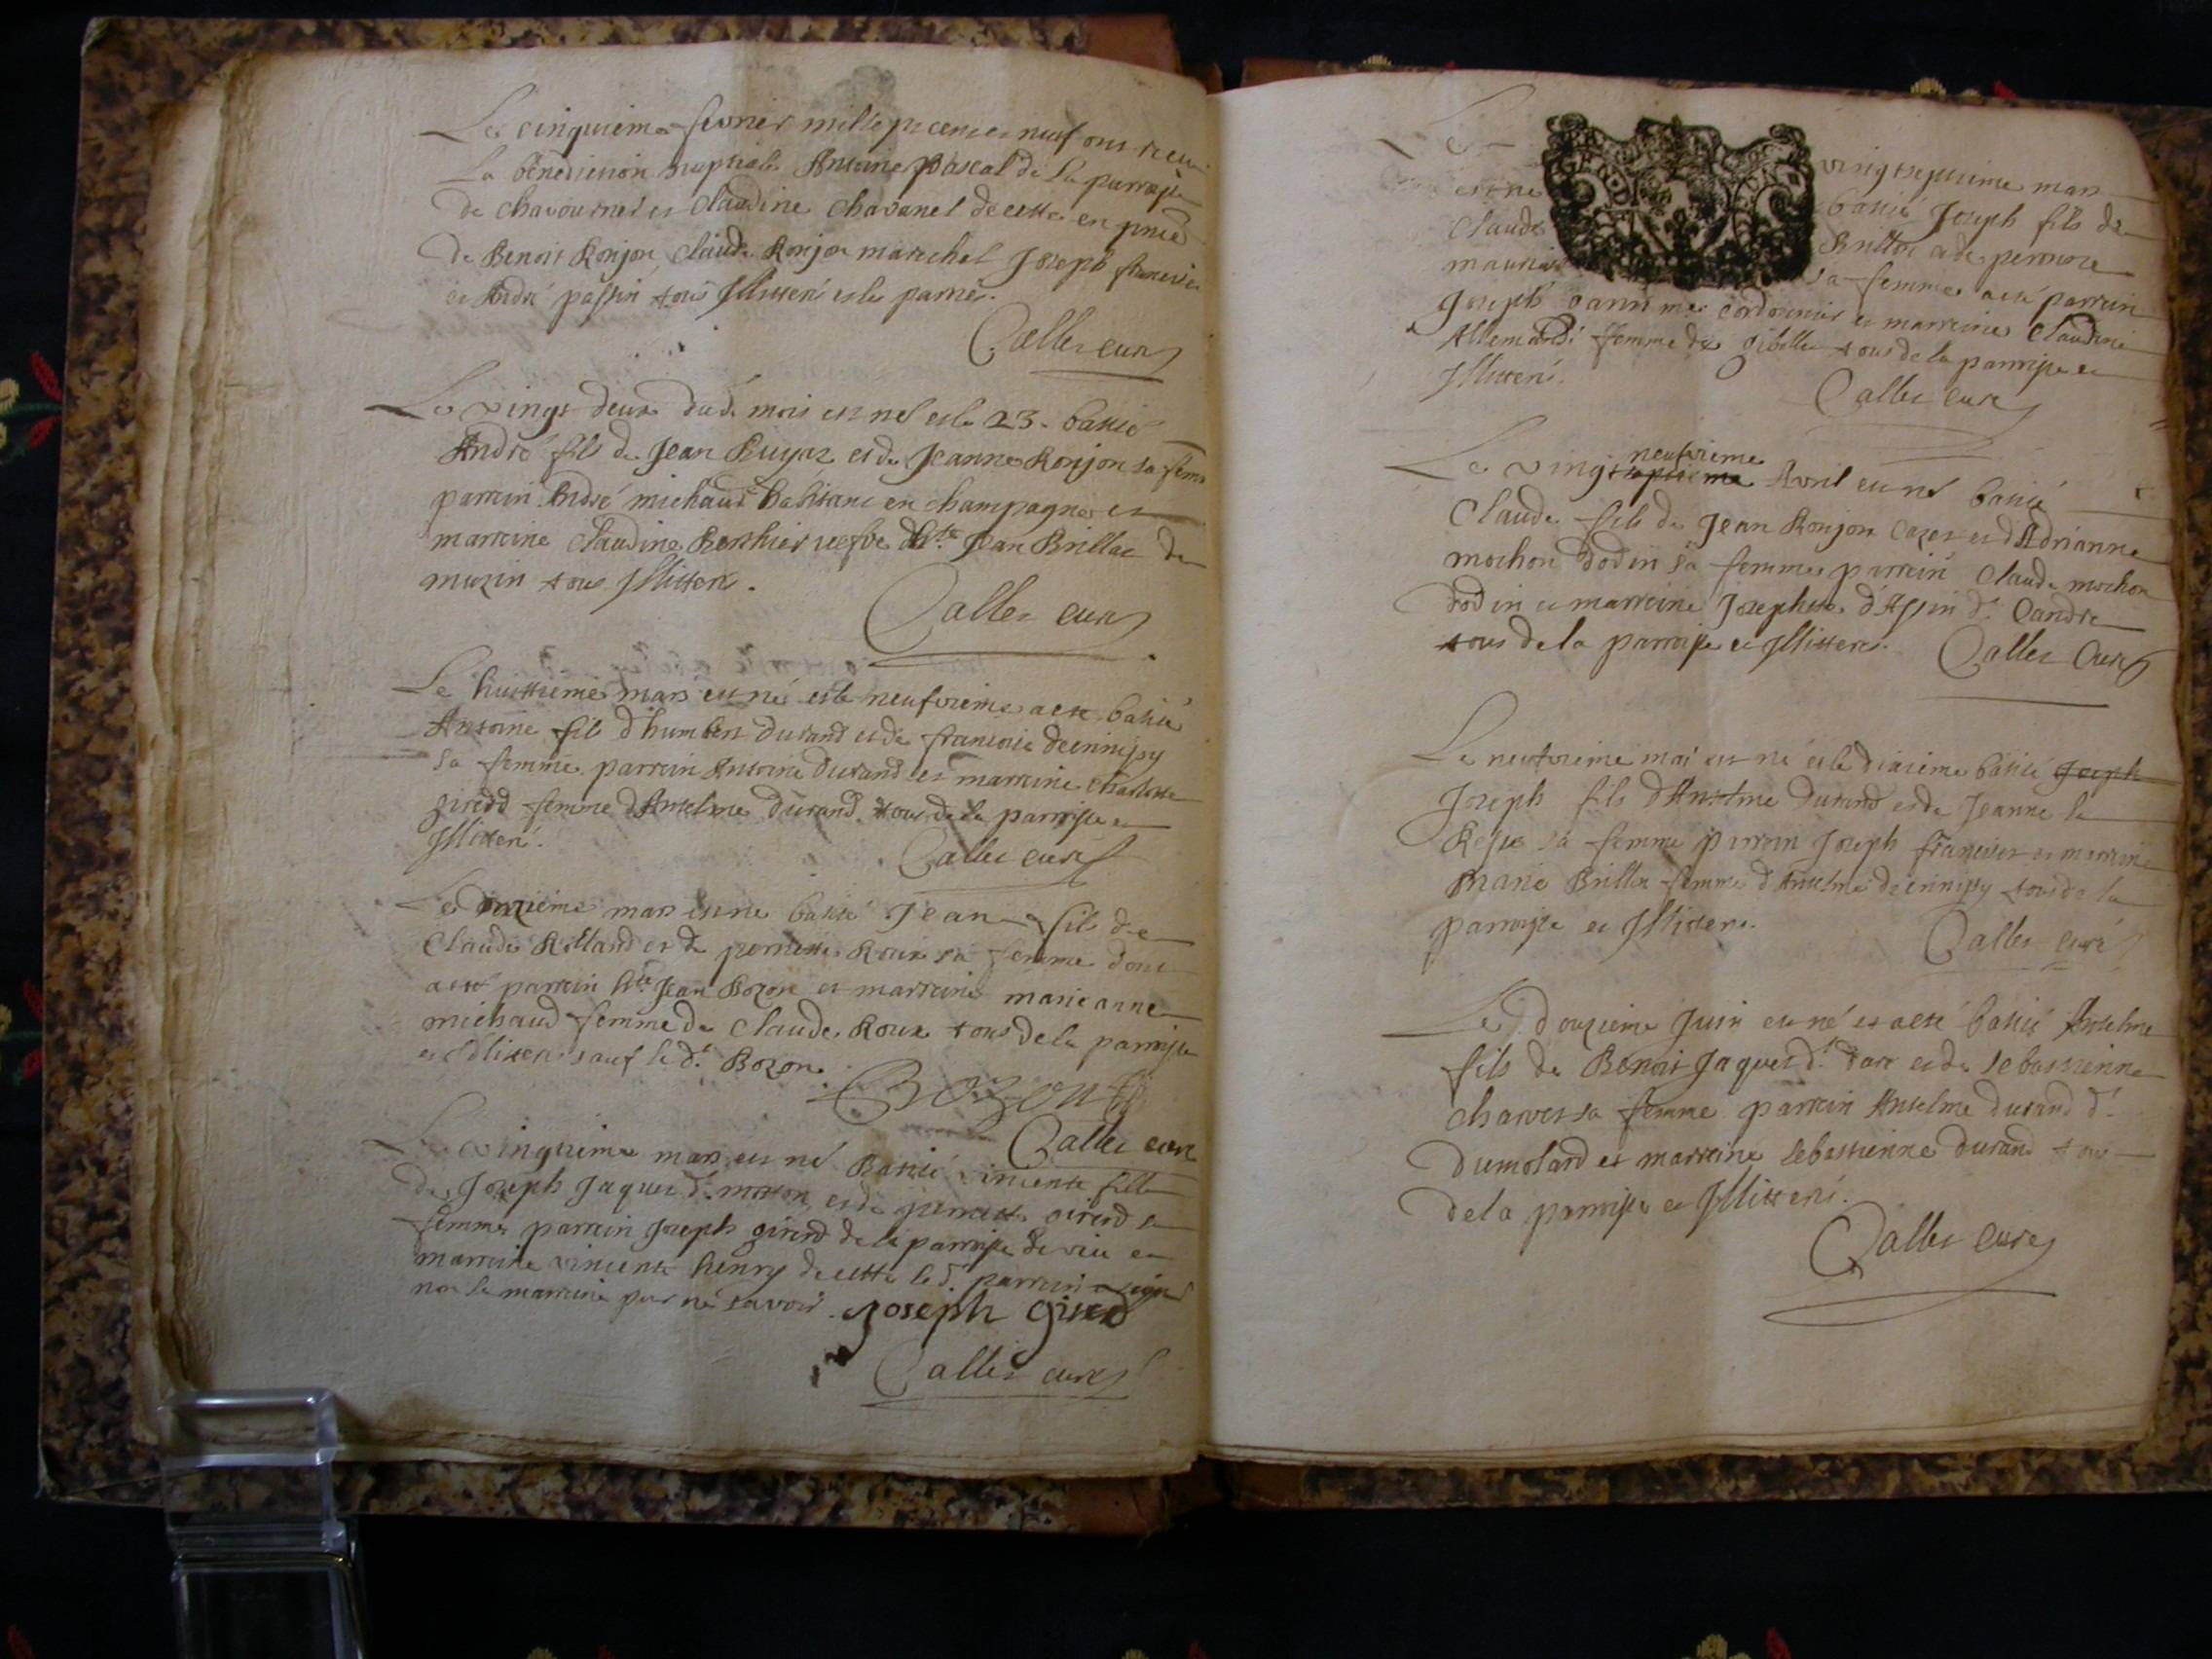 Le cinquieme fevrier mille sept cent et neuf ont receu
la benediction nuptiale Antoine Pascal de la parroisse
de chavournet et Claudine Chavanel de cette en pnce
de Benoit Ronjon, Claude Ronjon marechal Joseph francivin
et André passin tous Illiteré et les parties.
Callet curé
Le vingt deux dud. mois est né et le 23. batisé
André fils de Jean et de Jeanne Ronjon sa feme
parrein André michaud habitant en champagne et
marreine Claudine Berthier vefve d'hte Jean Brillat de
muzin tous Illiteré.
Callet curé
Le huittieme mars est né et le neufvieme a eté batisé
Antoine fils d'humbert Durand et de francoise
sa femme parrein Antoine Durand et marreine Charlotte
girerd femme d'Anselme Durand tous de la parroisse et
Illiteré.
Callet curé
Le onzieme mars est né batisé Jean fils de
Claude et de perrette Roux sa femme dont
a eté parrein hte Jean Bozon et marreine marieanne
michaud femme de Claude Roux tous de la parroisse
et Illiteré sauf le d. Bozon.
Bozon
Callet curé
Le vingtieme mars est né Batisé vincente fille
de Joseph Jaquet d. et de perrette girerd sa
femme parrein Joseph girerd de la parroisse de et
marreine vincente henry de cette le d. parrein a signé
non la marreine pour ne savoir. Joseph Girerd
Callet curé
Le vingtseptieme mars
est né batisé Joseph fils de
Claude Brillat et de pernone
sa femme a eté parrein
Joseph cordonnier et marreine Claudine
femme de tous de la parroisse et
Illiteré.
Callet curé
neufvieme
Le vingtseptieme Avril est né batisé
Claude fils de Jean Ronjon et d'Adrianne
mochon dodin sa femme parrein Claude mochon
dodin et marreine Josephte d'Assin d.
tous de la parroisse et Illiteré. Callet Curé
Le neufvieme mai est né et le dixieme batisé Joseph
Joseph fils d'Anselme Durand et de Jeanne la
sa femme parrein Joseph francivin et marreine
Marie Brillat femme d'Anselme tous de la
parroisse et Illiteré.
Callet curé
Le douzieme Juin est né et a eté batisé Anselme
fils de Benoit Jaquet d. et de Sebastienne
Charvet sa femme parrein Anselme Durand d.
Dumolard et marreine Sebastienne Durand tous
de la parroisse et Illiteré.
Callet curé